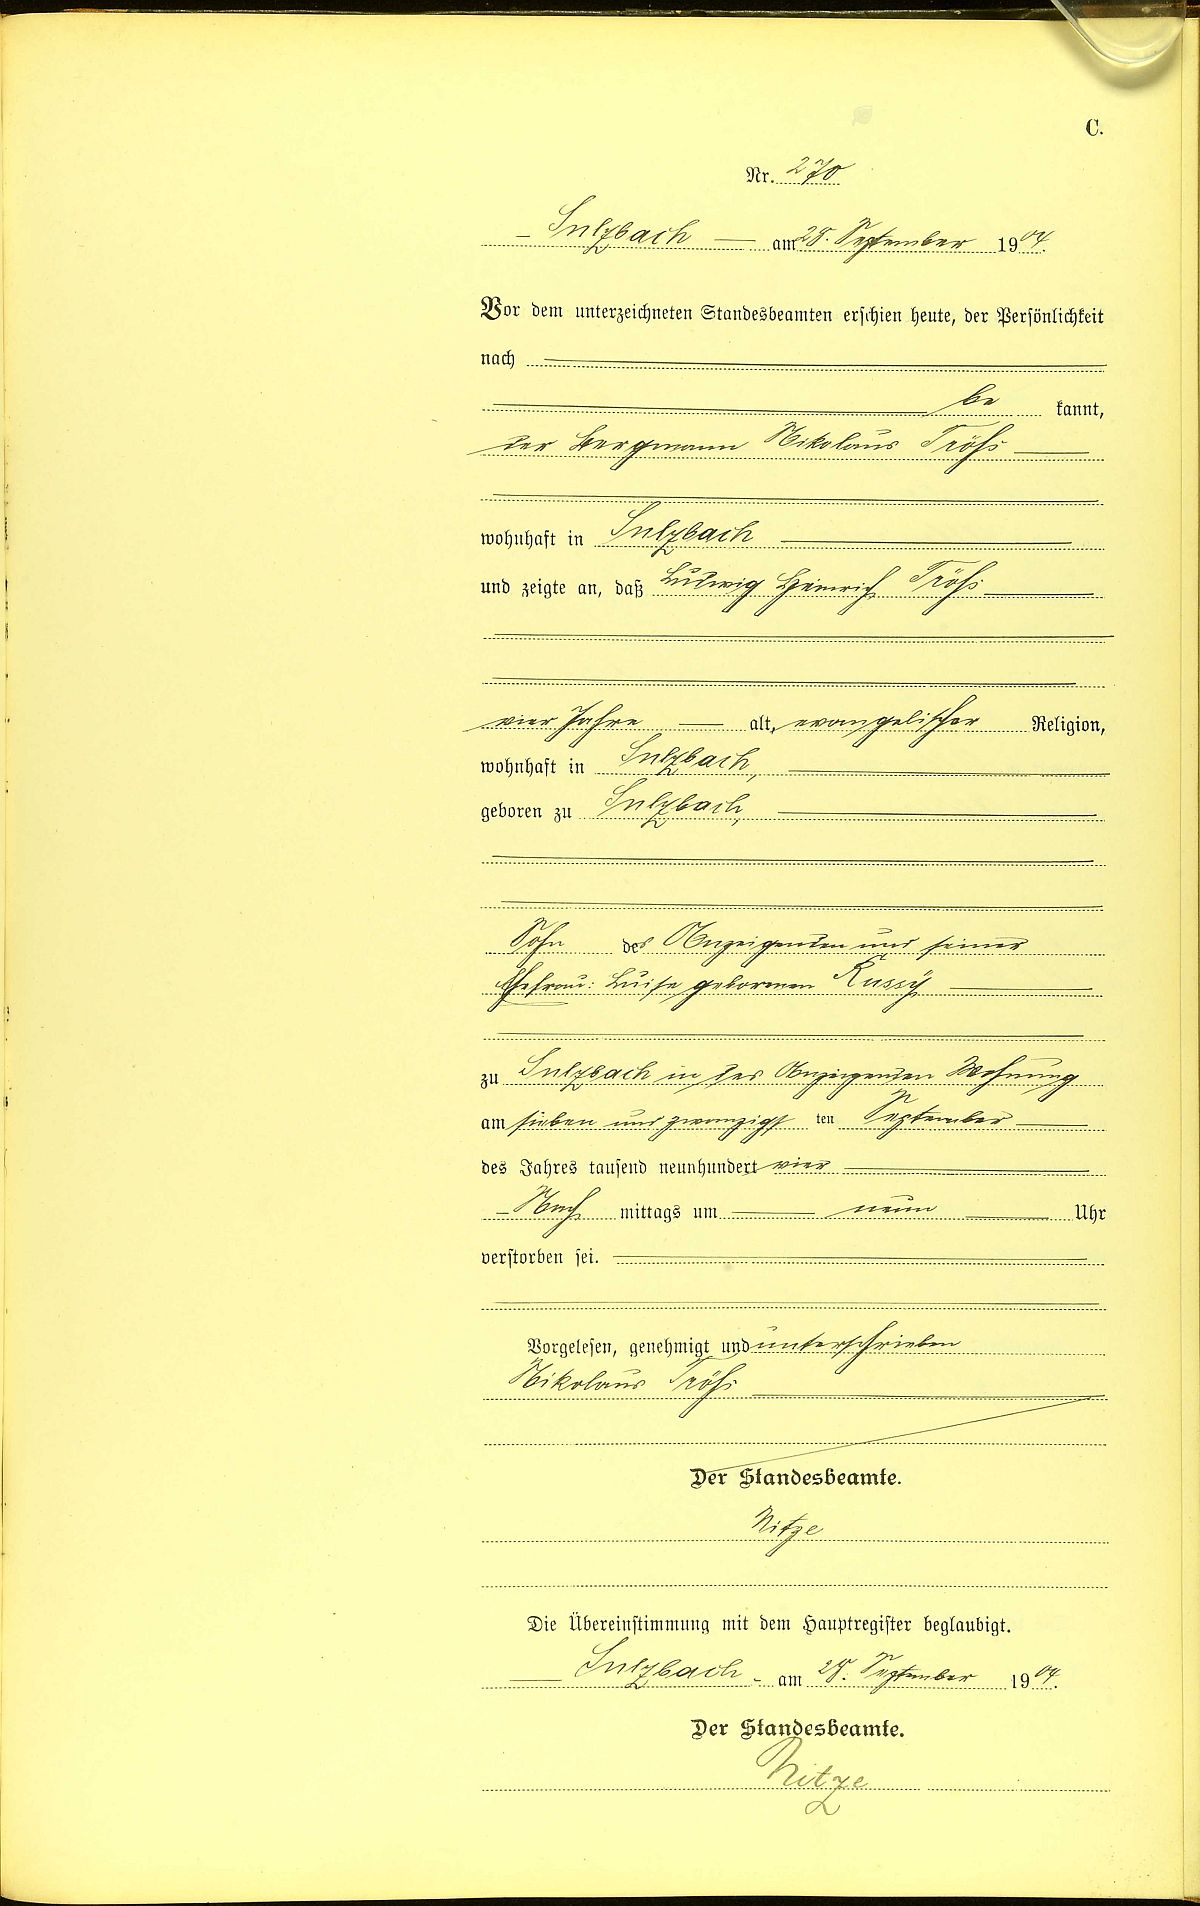 C.
Nr. 270
Sulzbach am 28. September 1904.
Vor dem unterzeichneten Standesbeamten erschien heute, der Persönlichkeit
nach
be kannt,
der Bergmann Nikolaus Tröhs
wohnhaft in Sulzbach
und zeigte an, daß Ludwig Heinrich Tröhs
vier Jahre alt, evangelischer Religion,
wohnhaft in Sulzbach,
geboren zu Sulzbach,
Sohn des Anzeigenden und seiner
Ehefrau: Luise geborenen Kussy
zu Sulzbach in des Anzeigenden Wohnung
am sieben und zwanzigsten September
des Jahres tausend neunhundert vier
Nach mittags um neun Uhr
verstorben sei.
Vorgelesen, genehmigt und unterschrieben
Nikolaus Tröhs
Der Standesbeamte.
Nitze
Die Übereinstimmung mit dem Hauptregister beglaubigt.
Sulzbach am 28. September 1904.
Der Standesbeamte.
Nitze